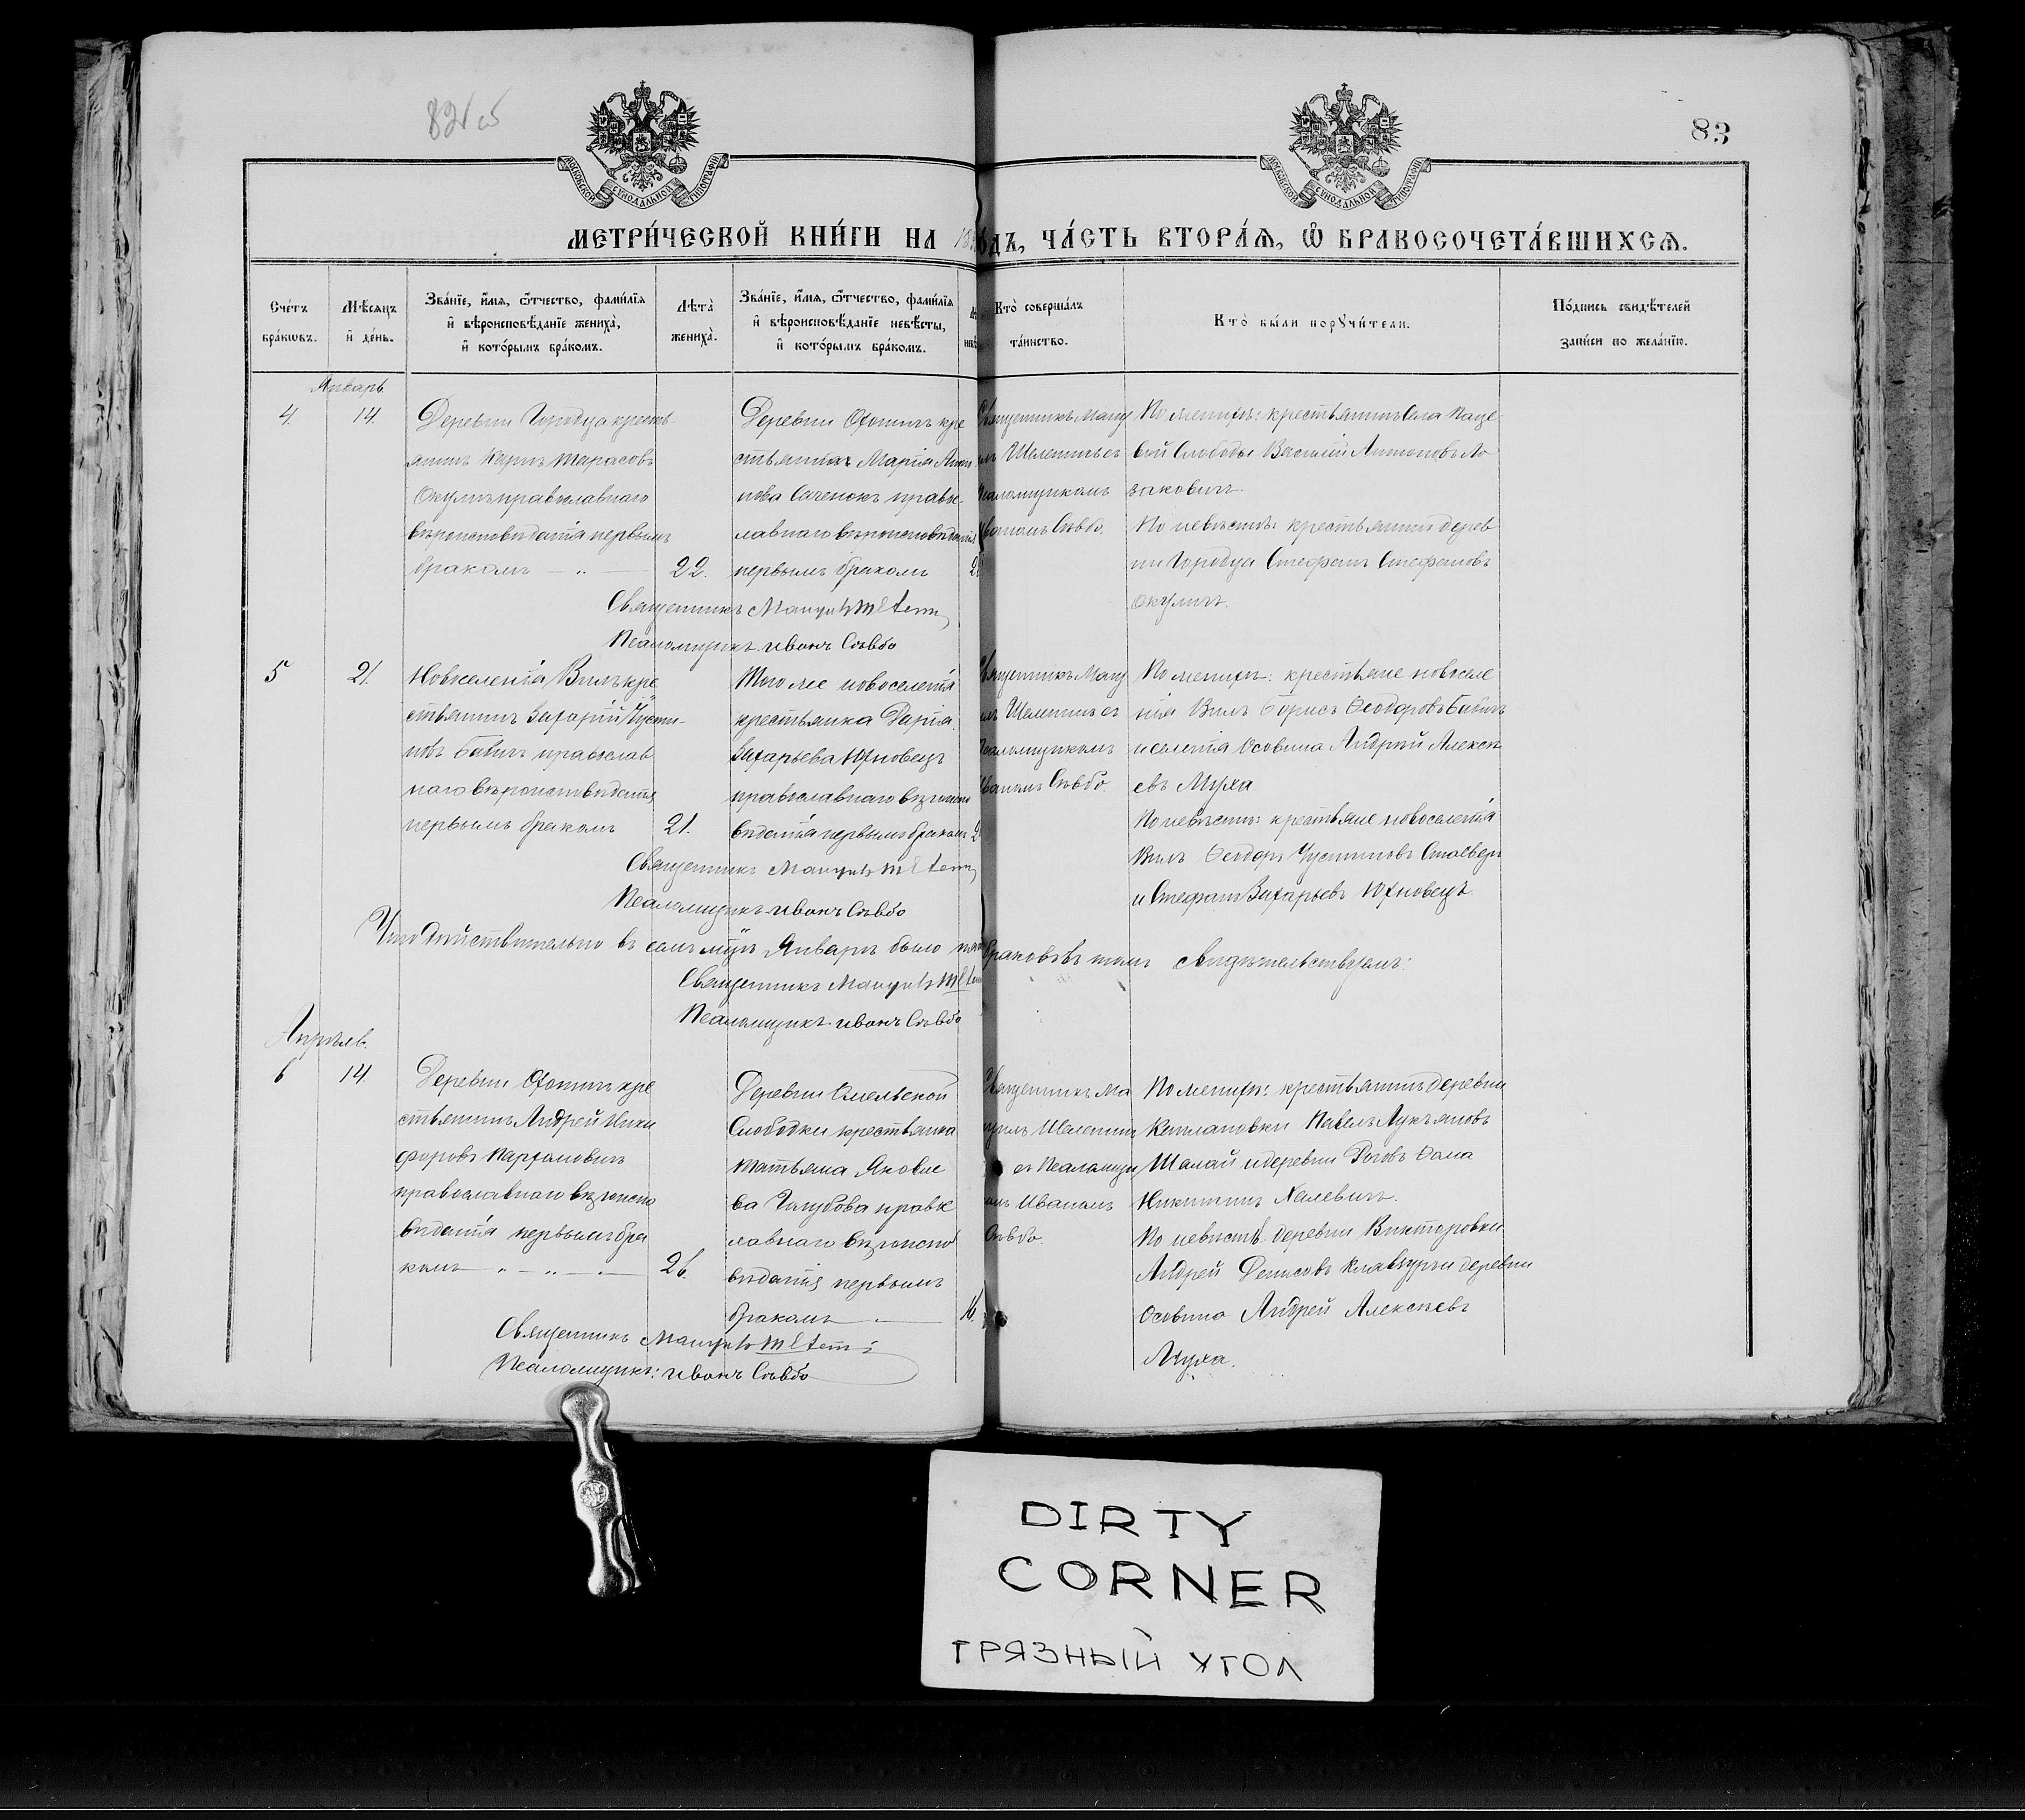 82 об
83
МОСКОВСКОЙ СѴНОДАЛЬНОЙ ТИПОГРАФІИ
МОСКОВСКОЙ СѴНОДАЛЬНОЙ ТИПОГРАФІИ
МЕТРИ́ЧЕСКОЙ КНИ́ГИ НА 18
ДЪ, ЧА́СТЬ ВТОРА́Ѧ, Ѽ БРАКОСОЧЕТА́ВШИХСѦ.
Сче́тъ бра́кѡвъ.
Мѣ́сяцъ и҆ де́нь.
Зва́нїе, и҆́мѧ, ѻ҆́тчество, фами́лїѧ и҆ вѣроисповѣ́данїе жениха̀, и҆ кото́рымъ бра́комъ.
Лѣта̀ жениха̀.
Зва́нїе, и҆́мѧ, ѻ҆́тчество, фами́лїѧ и҆ вѣроисповѣ́данїе невѣ́сты, и҆ кото́рымъ бра́комъ.
Кто̀ соверша́лъ та́инство.
Кто̀ бы́ли порꙋчи́тели.
По́дпись свидѣ́телей за́писи по жела́нїю.
Январь
4.
14.
Деревни Городца кресть
янинъ Карпъ Тарасовъ
Окуличъ православнаго
вѣроисповѣданія первымъ
бракомъ
22.
Деревни Охоничъ кре
стьянка Марія Анто
нова Саченокъ правос
лавнаго вѣроисповѣданія
первымъ бракомъ
Священникъ Ману
илъ Шелепинъ съ
Псаломщикомъ
Иваномъ Сѣвбо.
По женихѣ: крестьянинъ села Паце
вой Слободы Василій Антоновъ Ло
заковичъ.
По невѣстѣ: крестьянинъ дерев
ни Городца Стефанъ Стефановъ
Окуличъ.
Священникъ Мануилъ
Псаломщикъ Иванъ Сѣвбо
5
21.
Новоселенія Вилъ кре
стьянинъ Захарій Іусти-
новъ Бабичъ православ
наго вѣроисповѣданія
первымъ бракомъ
21.
Того же новоселенія
крестьянка Дарія
Захарьева Юхновецъ
православнаго вѣроиспо
вѣданія первымъ бракомъ
Священникъ Ману
илъ Шелепинъ съ
Псаломщикомъ
Иваномъ Сѣвбо.
По женихѣ: крестьяне новоселе
нія Вилъ Борисъ Ѳеодоровъ Бабичъ
и селенія Осовина Андрей Алексѣ
евъ Муха
По невѣстѣ: крестьяне новоселенія
Вилъ Ѳеодоръ Іустиновъ
и Стефанъ Захарьевъ Юхновецъ.
Священникъ Мануилъ
Псаломщикъ Иванъ Сѣвбо
Что дѣйствительно въ семъ м-цѣ Январѣ было
браковъ въ томъ свидѣтельствуемъ:
Священникъ Мануилъ
Псаломщикъ Иванъ Сѣвбо
Апрѣль.
6
14.
Деревни Охоничъ кре
стьянинъ Андрей Ники
форовъ Парфоновичъ
православнаго вѣроиспо
вѣданія первымъ бра
комъ
26.
Деревни Омельской
Слободки крестьянка
Татьяна Яковле
ва Голубова правос
лавнаго вѣроиспо
вѣданія первымъ
бракомъ
16.
Священникъ Ма
нуилъ Шелепинъ
съ Псаломщи
комъ Иваномъ
Сѣвбо.
По женихѣ: крестьянинъ деревни
Каплановки Павелъ Лукьяновъ
Шалай и деревни Роговъ Ѳома
Никитинъ Халевичъ.
По невѣстѣ деревни Викторовки
Андрей Денисовъ и деревни
Осовино Андрей Алексѣевъ
Муха.
Священникъ Мануилъ
Псаломщикъ: Иванъ Сѣвбо
DIRTY
CORNER
ГРЯЗНЫЙ УГОЛ